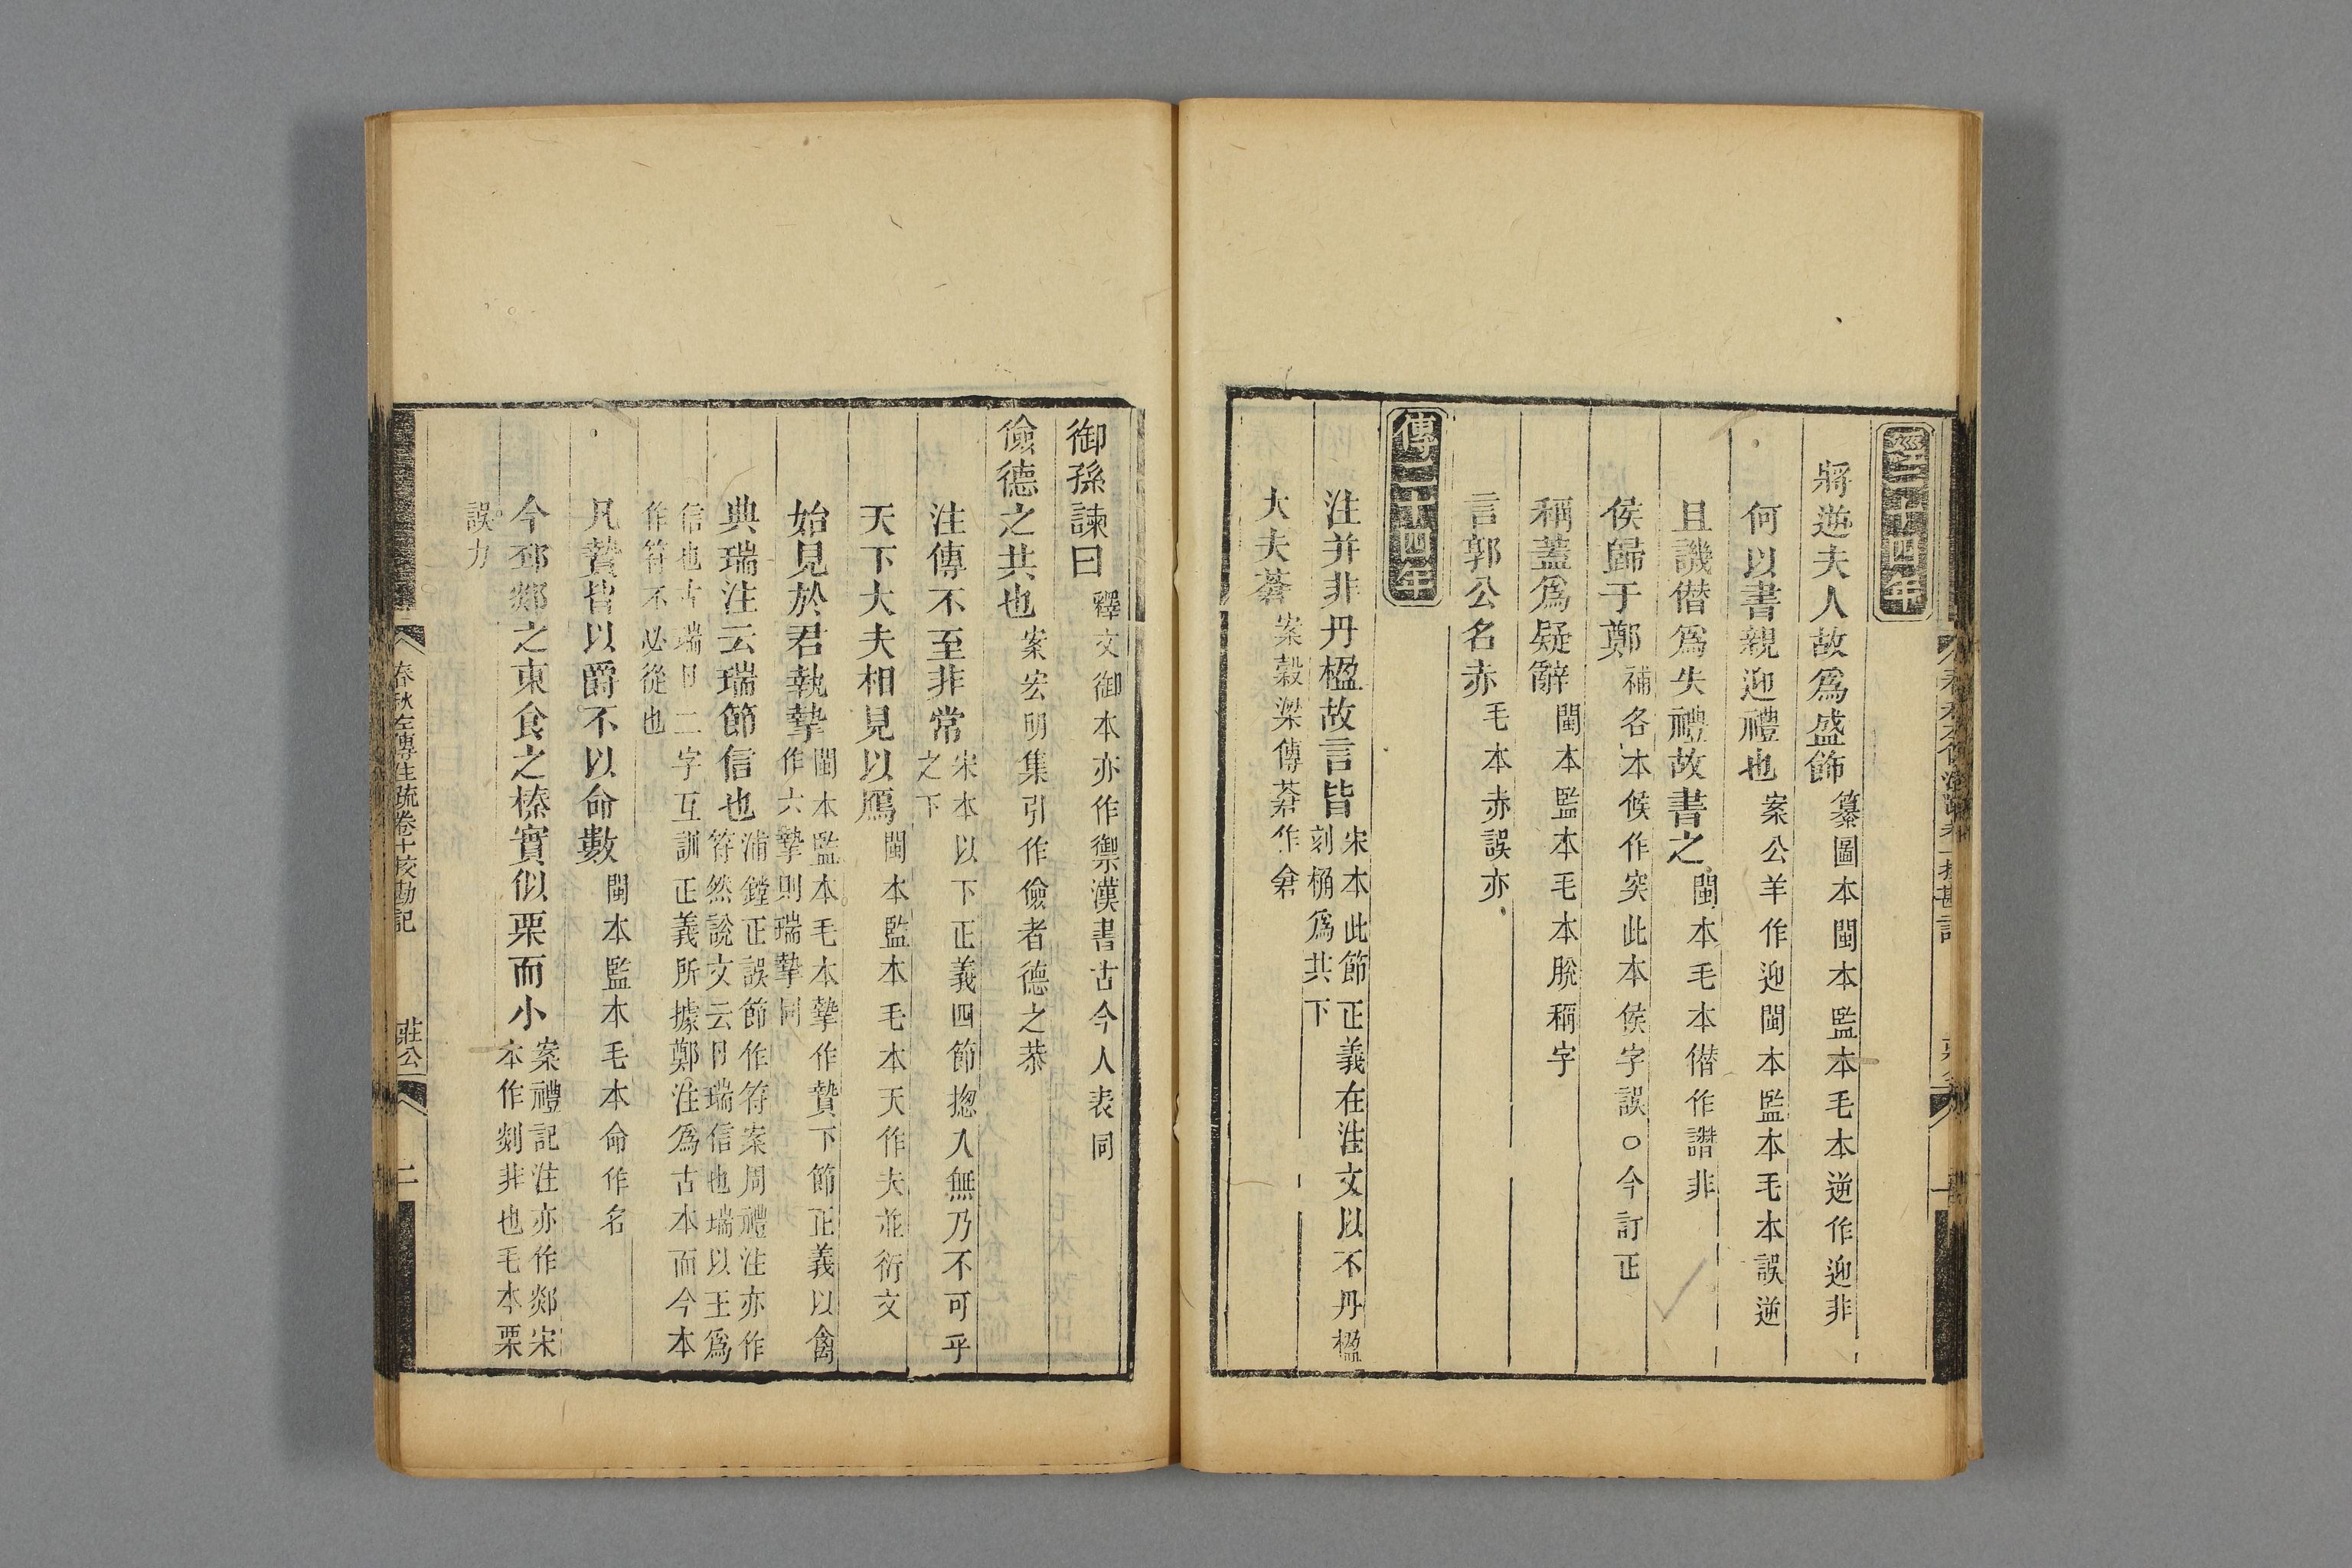 經二十四年
將逆夫人故爲盛飾纂圖本閩本監本毛本逆作迎非
何以書親迎禮也案公羊作迎閩本監本毛本誤逆
且譏僣爲失禮故書之閩本毛本僣作譖非
侯歸于鄭補各本候作突此本侯字誤○今訂正
稱蓋爲疑辭閩本監本毛本脫稱字
言郭公名赤毛本赤誤亦
傳二十四年
注并非丹楹故言皆宋本此節正義在注文以不丹楹
刻桷爲共下
大夫蒼案穀梁傳蒼作倉
御孫諫曰釋文御本亦作禦漢書古今人表同
儉德之共也案宏明集引作儉者德之恭
注傳不至非常宋本以下正義四節揔入無乃不可乎
之下
天下大夫相見以鴈閩本監本毛本天作夫並衍文
始見於君執摯閩本監本毛本摯作贄下節正義以禽
作六摯則瑞摯同
典瑞注云瑞節信也浦鏜正誤節作符案周禮注亦作
符然說文云卪瑞信也瑞以玉爲
信也古瑞卪二字互訓正義所據鄭注爲古本而今本
作符不必從也
凡贄皆以爵不以命數閩本監本毛本命作名
今邳鄒之東食之榛實似栗而小案禮記注亦作鄒宋
本作剡非也毛本栗
誤力
春秋左傳注疏卷十校勘記
莊公
二